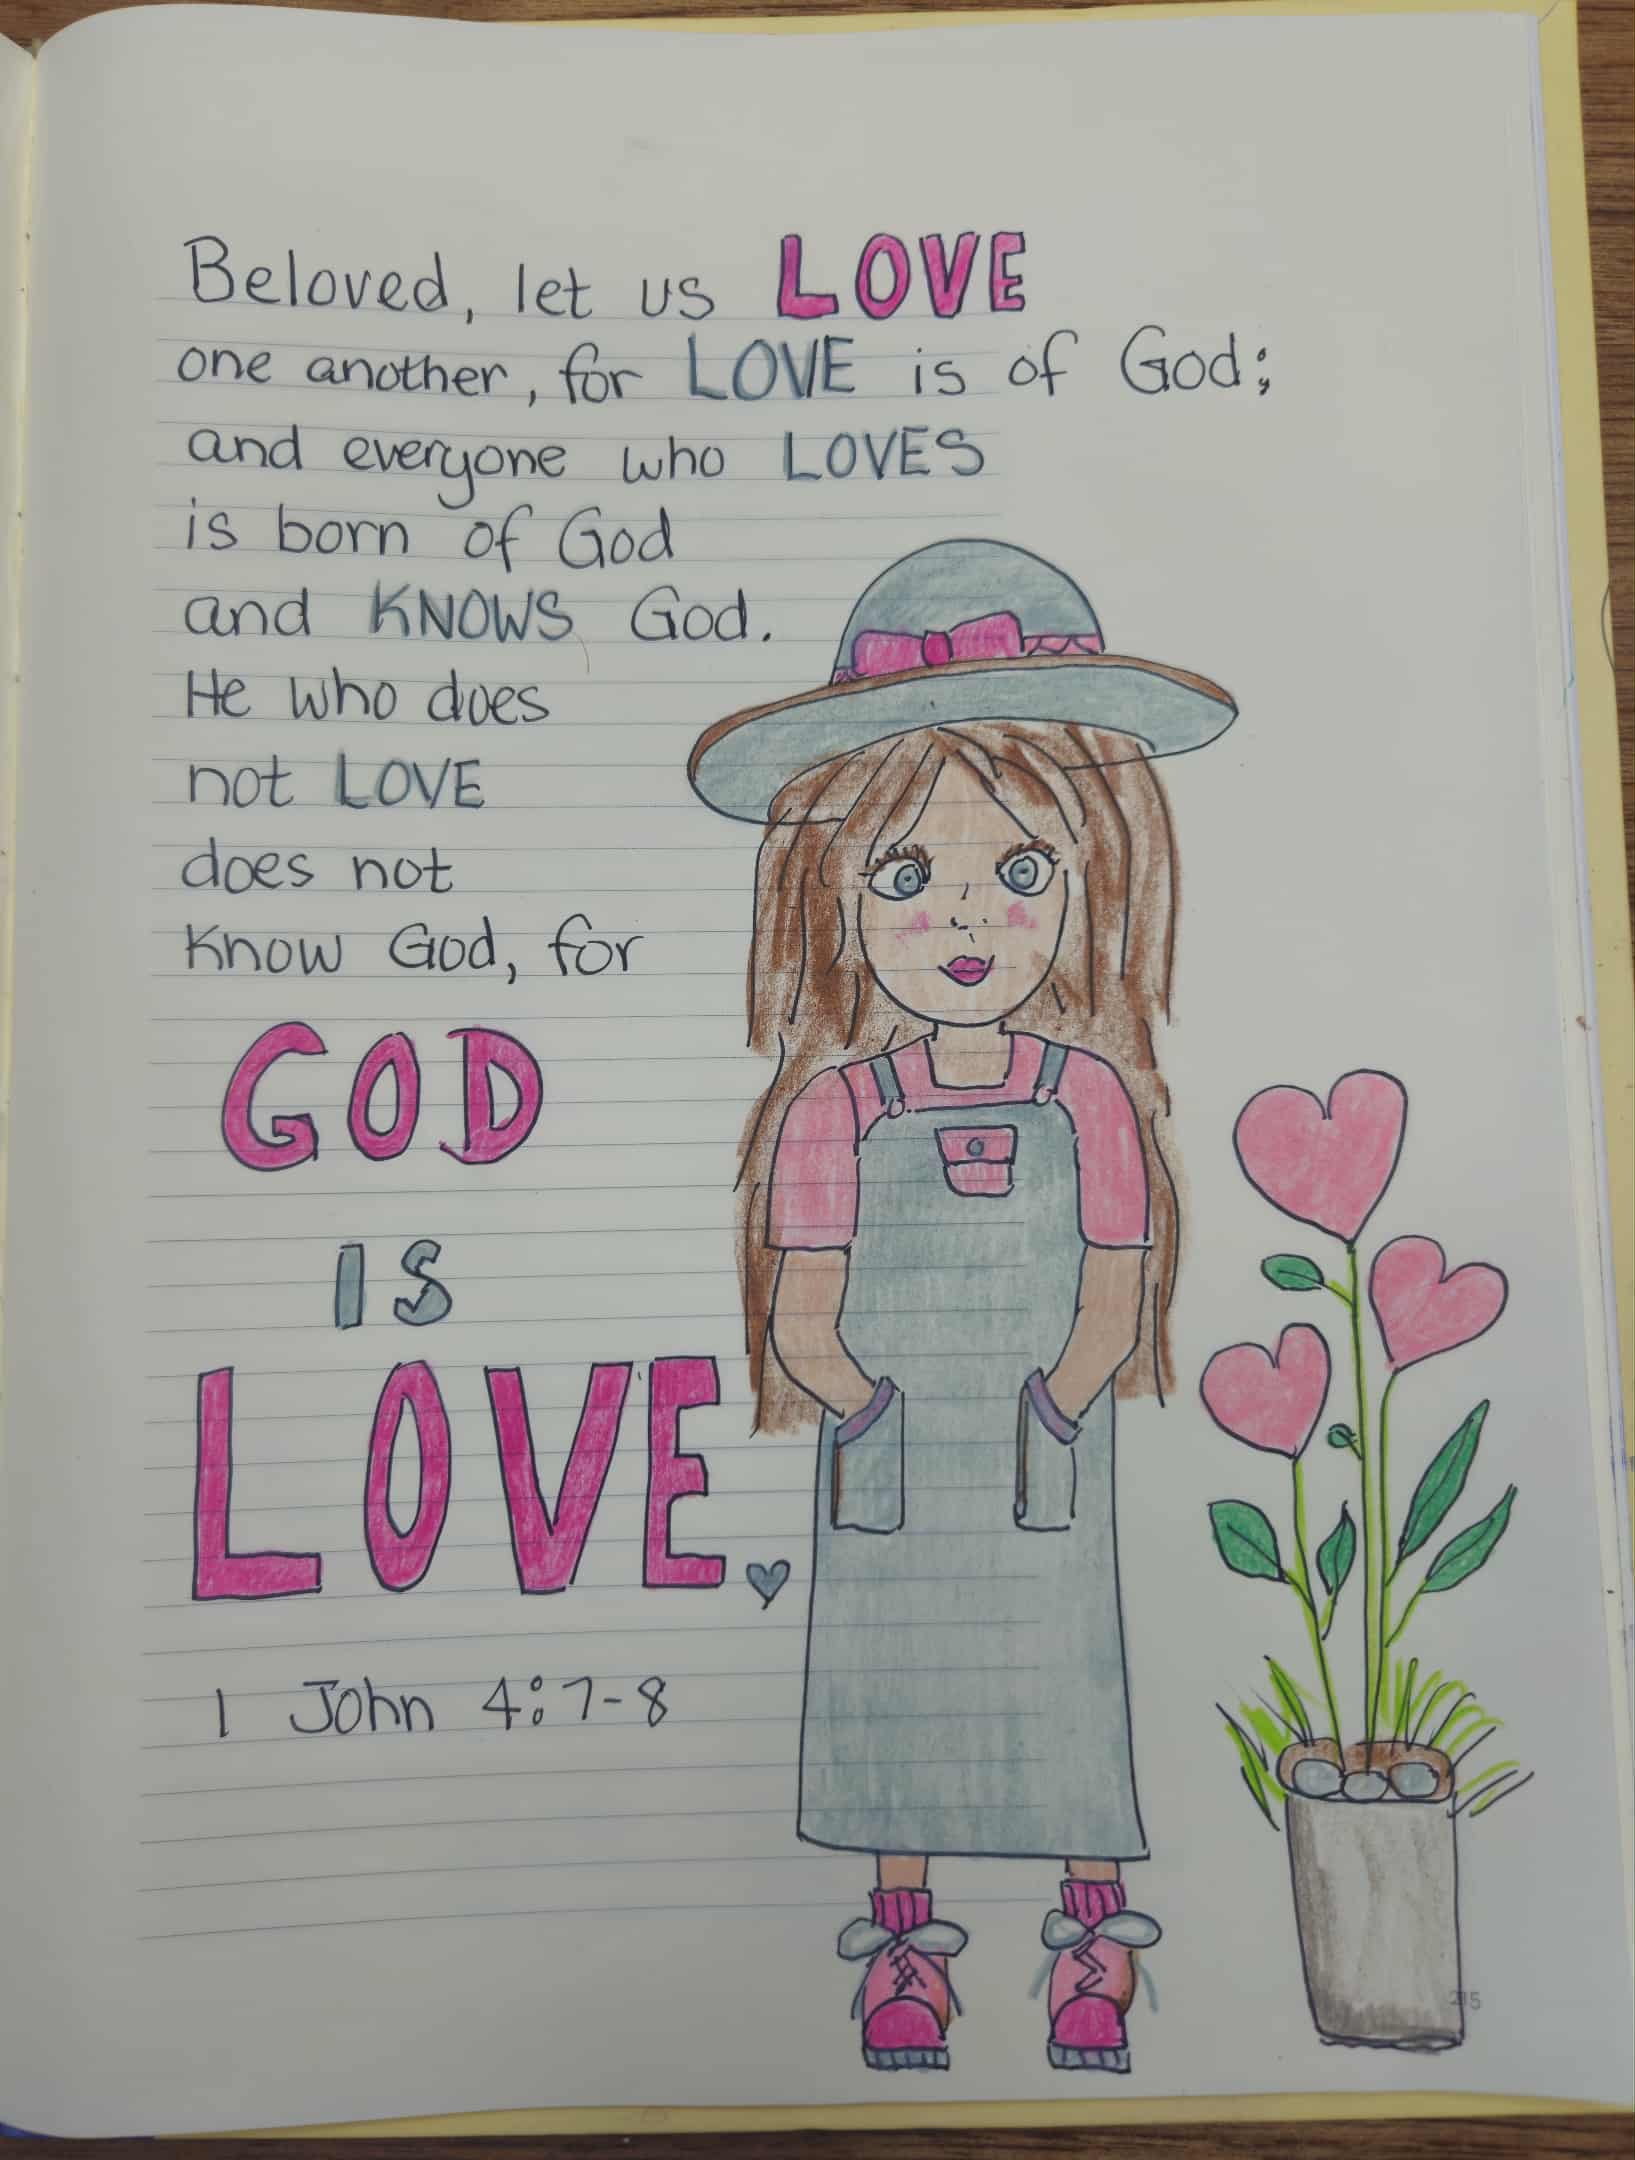 Beloved, let us LOVE
one another, for LOVE is of God;
and everyone who LOVES
is born of God
and KNOWS God.
He who does
not LOVE
does not
Know God, for
GOD
IS
LOVE.
1 John 4:7-8
215